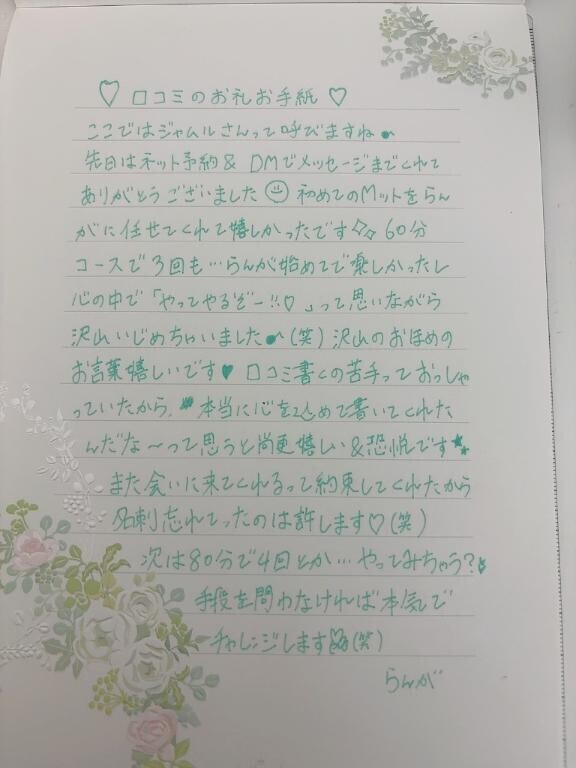 ♡ 口コミのお礼お手紙 ♡
ここではジャムルさんって呼びますね
先日はネット予約& DMでメッセージまでくれて
ありがとうございました☺ 初めてのMットをらん
がに任せてくれて嬉しかったです✧✧ 60分
コースで3回も…らんが始めてで楽しかったし
心の中で「やってやるぞー!!♡」って思いながら
沢山いじめちゃいました (笑) 沢山のおほめの
お言葉嬉しいです♥ 口コミ書くの苦手っておっしゃ
っていたから、本当に心を込めて書いてくれた
んだな〜って思うと尚更嬉しい&恐悦です★
また会いに来てくれるって約束してくれたから
名刺忘れてったのは許します♡(笑)
次は80分で4回とか…やってみちゃう?
手段を問わなければ本気で
チャレンジします(笑)
らんが